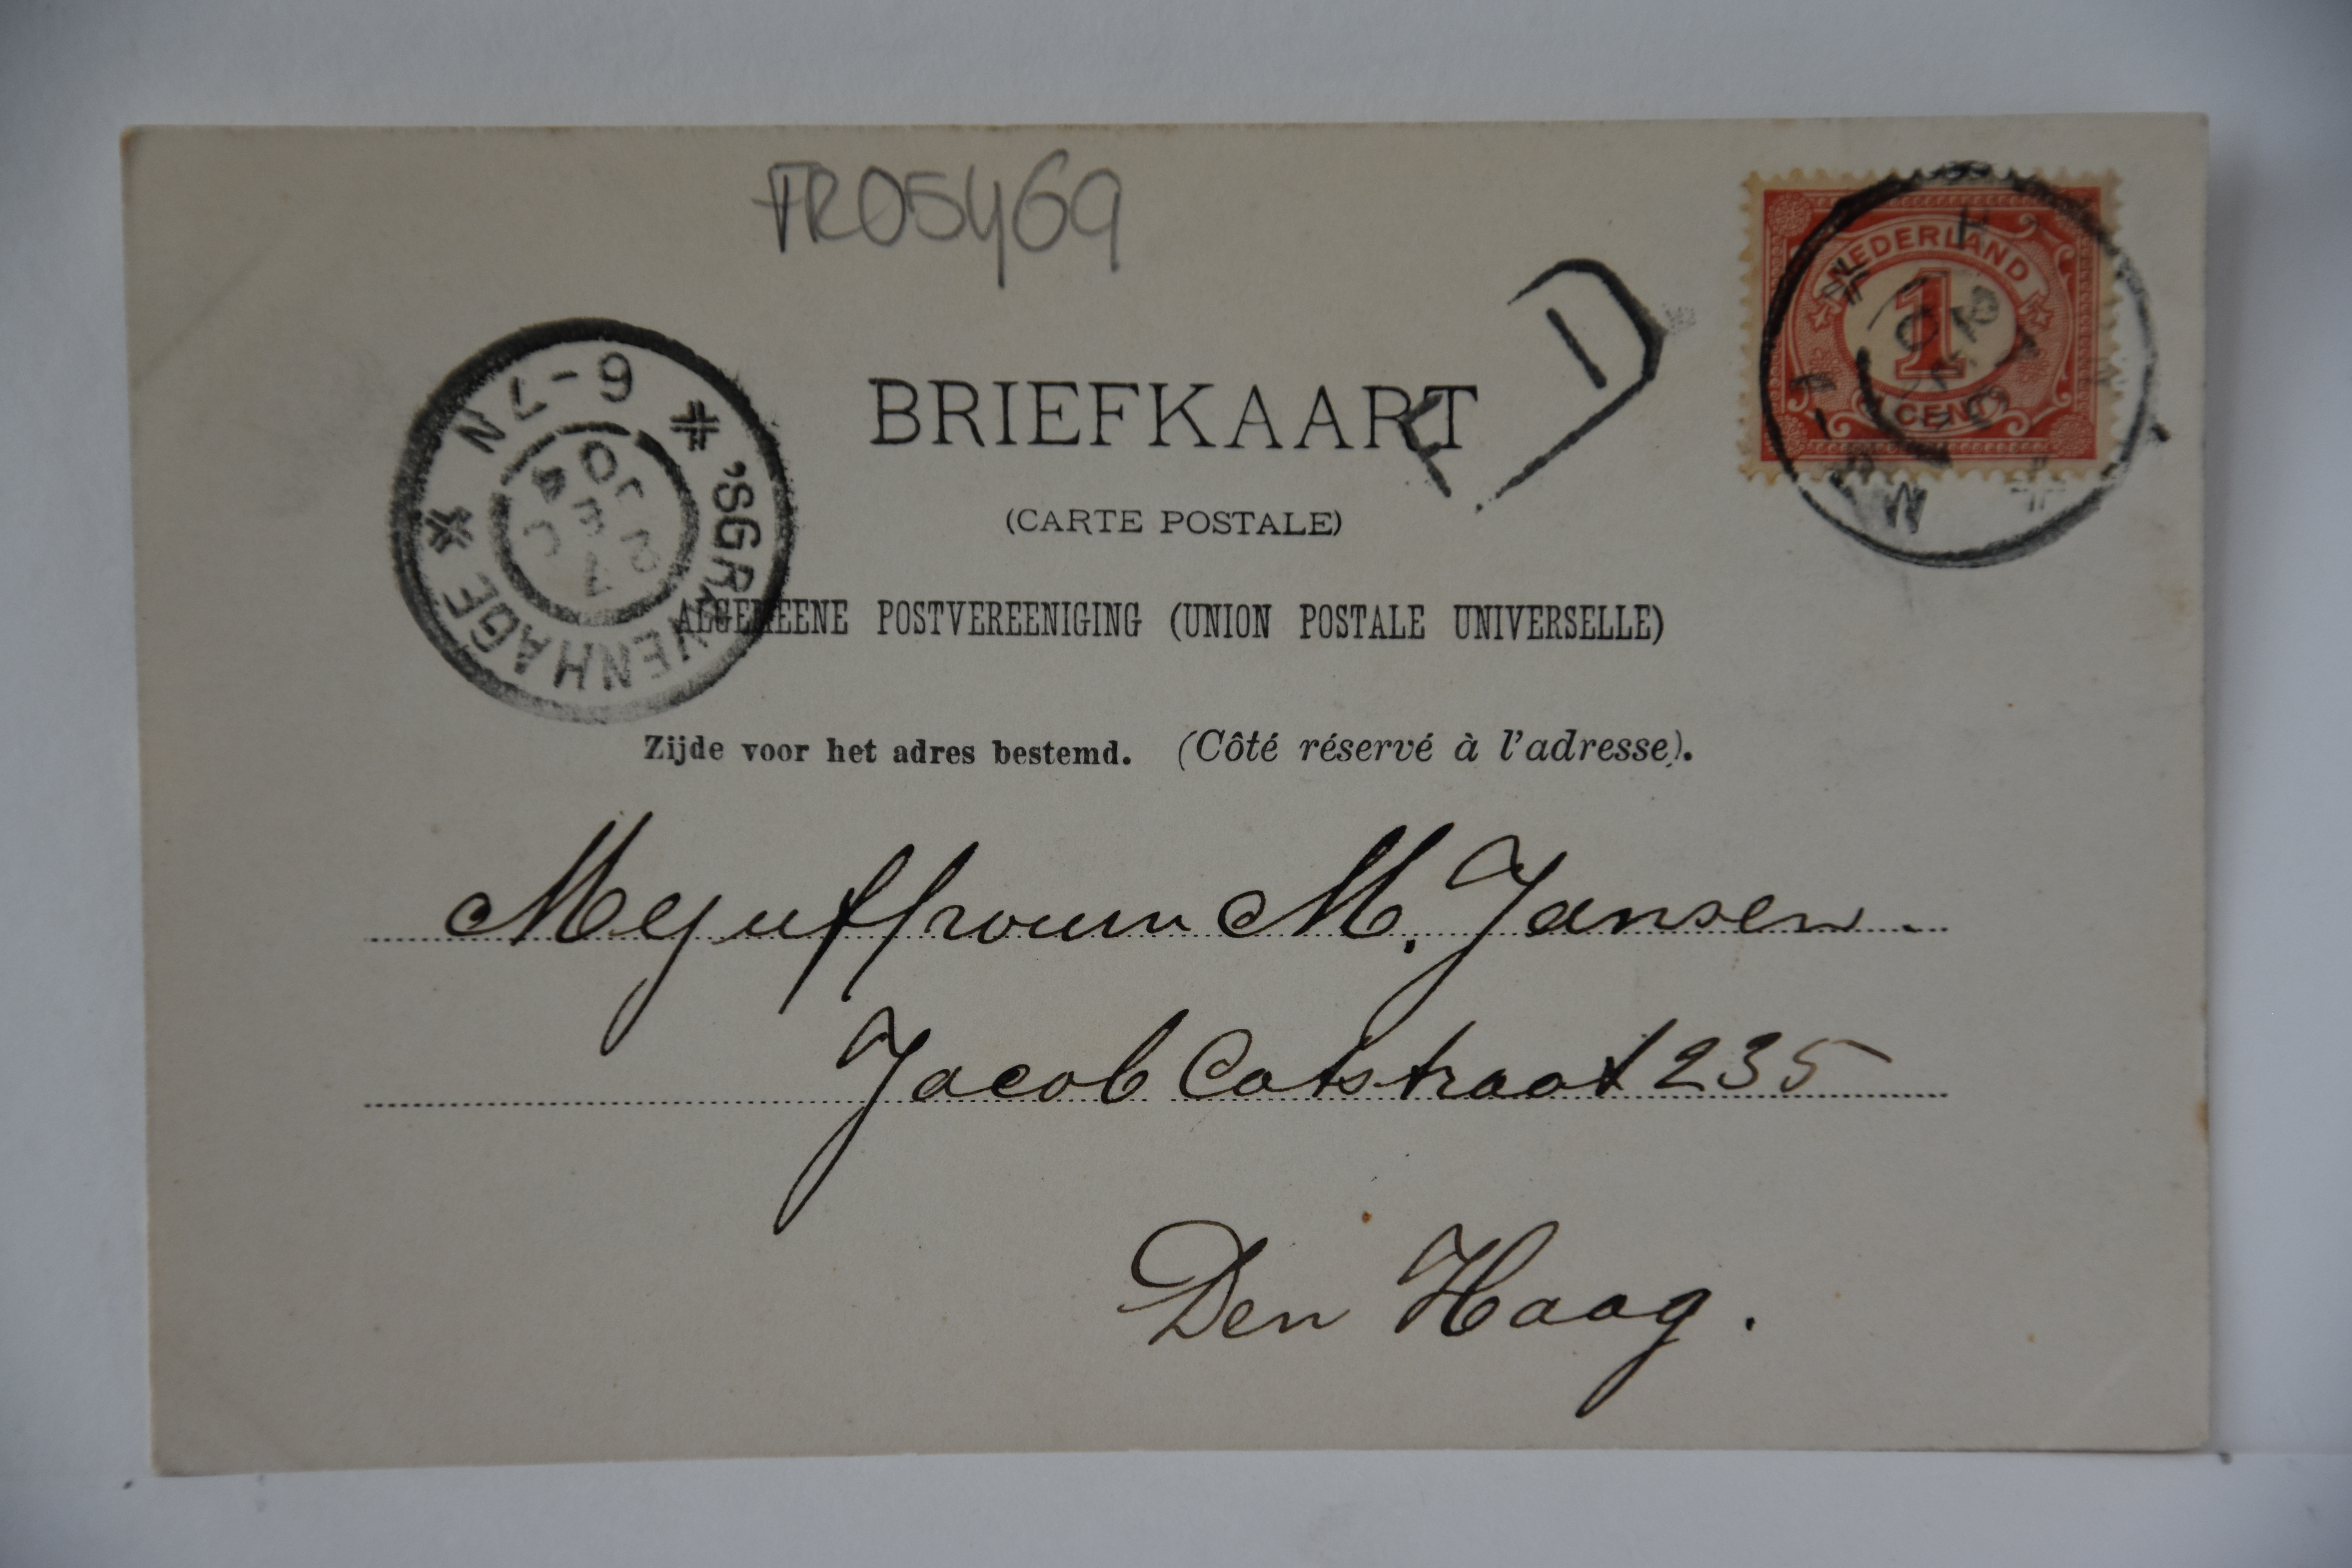 TR05469
NEDERLAND
1
1 CENT
6-7N
'SGRAVENHAGE
BRIEFKAART
(CARTE POSTALE)
ALGEMEENE POSTVEREENIGING (UNION POSTALE UNIVERSELLE)
Zijde voor het adres bestemd. (Côté réservé à l'adresse).
Mejuffrouw M. Jansen.
Jacob Catstraat 235
Den Haag.